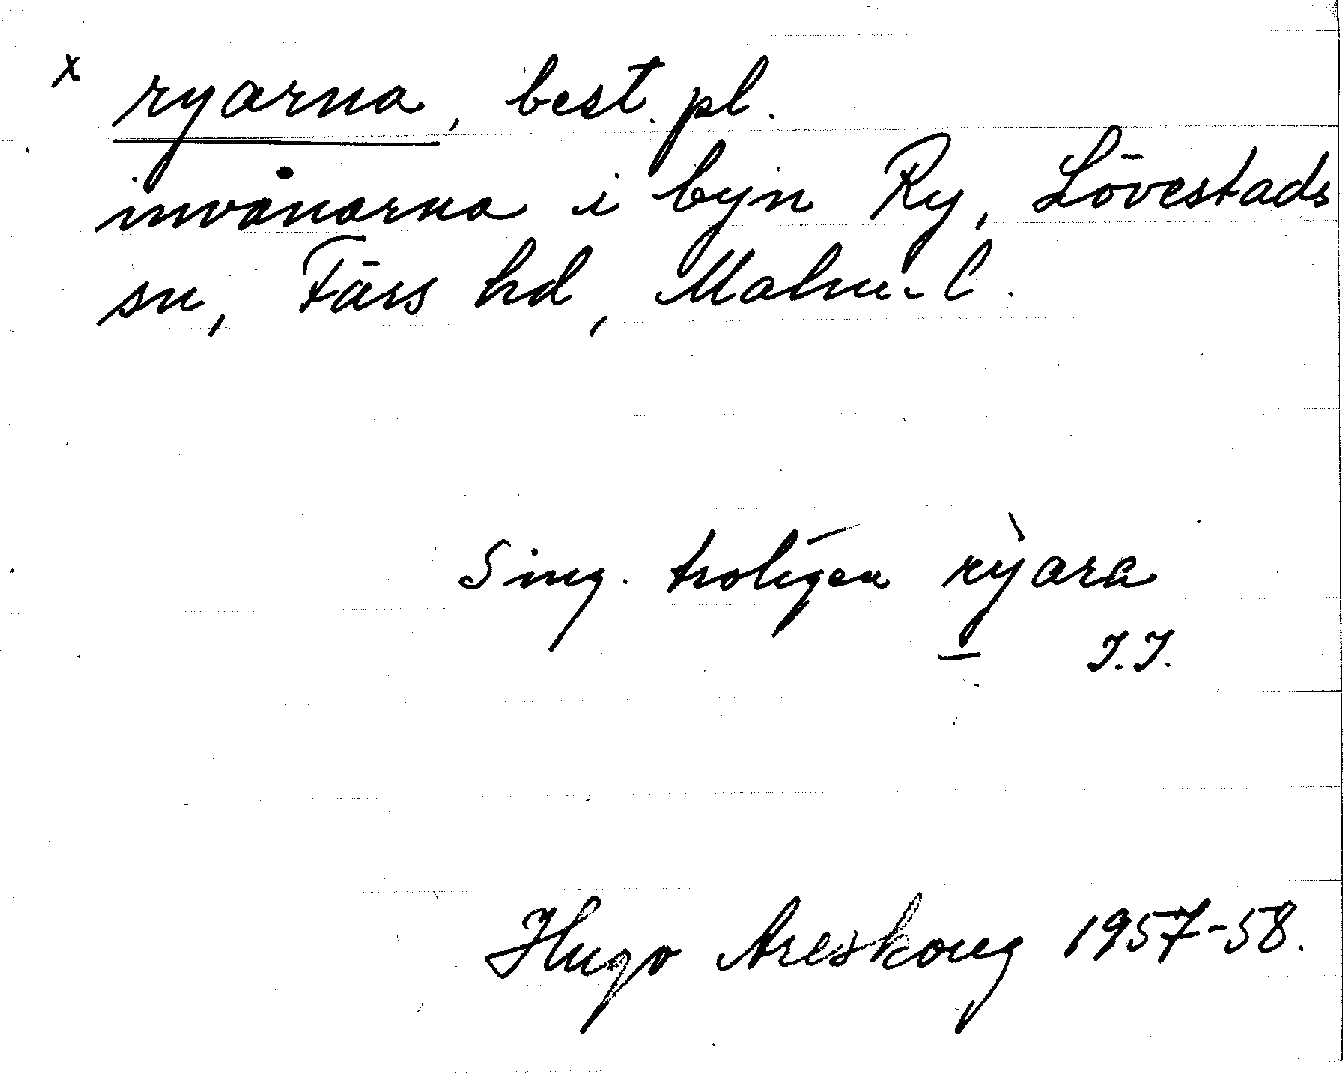 x ryarna, best. pl.
invånarna i byn Ry, Lövestads
sn, Färs hd, Malm. l.
Sing. troligen rỳara
I.I.
Hugo Areskoug 1957-58.